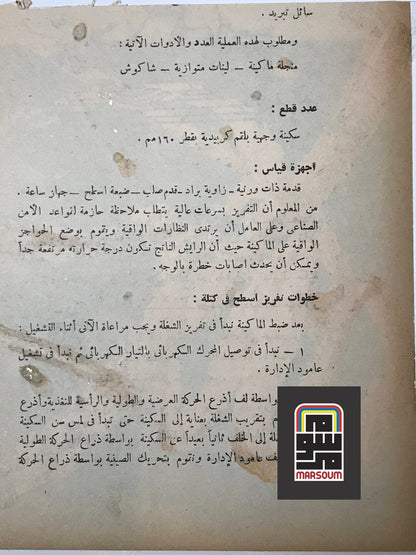 سائل تبريد .
ومطلوب لهذه العملية العدد والادوات الآتية :
منجلة ماكينة ـ لينات متوازية ـ شاكوش
عدد قطع :
سكينة وجهية بلقم كربيدية بقطر ١٦٠مم .
اجهزة قياس :
قدمة ذات ورنية ـ زاوية براد ـ قدم صلب ـ ضبعة اسطح ـ جهاز ساعة .
من المعلوم أن التفريز بسرعات عالية يتطلب ملاحظة حازمة لقواعد الأمن
الصناعى وعلى العامل أن يرتدى النظارات الواقية ويقوم بوضع الحواجز
الواقية على الماكينة حيث أن الرايش الناتج تكون درجة حرارته مرتفعة جداً
ويمكن أن يحدث اصابات خطرة بالوجه .
خطوات تفريز اسطح فى كتلة :
بعد ضبط الماكينة نبدأ فى تفريز الشغلة ويجب مراعاة الآتى أثناء التشغيل :
١ ـ نبدأ فى توصيل المحرك الكهربائى بالتيار الكهربائى ثم نبدأ فى تشغيل
عامود الإدارة .
بواسطة لف أذرع الحركة العرضية والطولية والرأسية للتغذية وأذرع
بتقريب الشغلة بعناية إلى السكينة حتى تبدأ فى لمس سن السكينة
إلى الخلف ثمانياً بعيداً عن السكينة بواسطة ذراع الحركة الطولية
عامود الإدارة ونقوم بتحريك الصينية بواسطة ذراع الحركة
مرسوم
MARSOUM